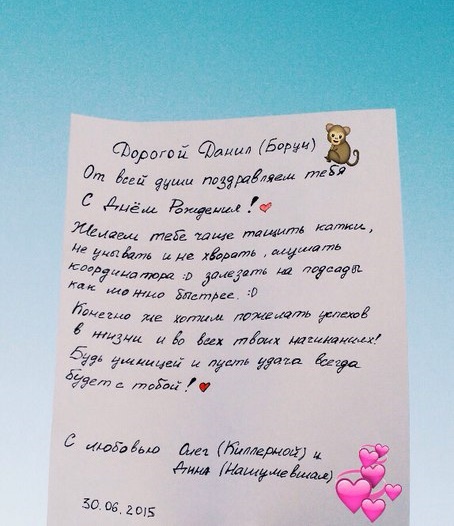 Дорогой Данил (Боруц)
От всей души поздравляем тебя
С Днём Рождения!
Желаем тебе чаще тащить катки,
не унывать и не хворать, слушать
координатора :D залезать на подсады
как можно быстрее. :D
Конечно же хотим пожелать успехов
в жизни и во всех твоих начинаниях!
Будь умницей и пусть удача всегда
будет с тобой!
С любовью Олег (Киллерной) и
Анна (Нашумевшая)
30.06.2015